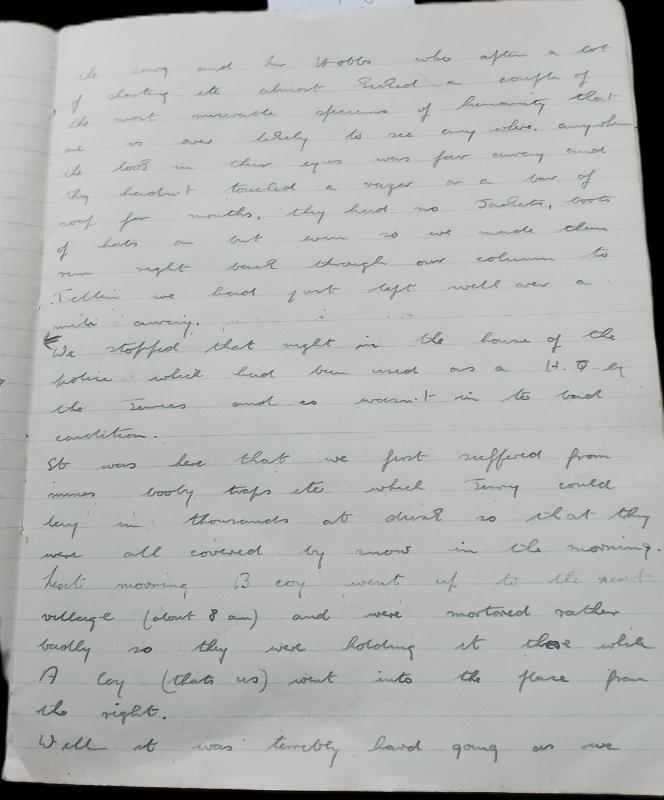 the and her Hobbs who after a lot
of shouting etc almost kicked a couple of
the most miserable specimens of humanity that
one is ever likely to see any where. anywhere
the look in their eyes was far away and
they hadn't touched a razer or a bar of
soap for months, they had no Jackets, boots
of hats on but even so we made them
run right back through our column to
we had just left well over a
mile away.
We stopped that night in the house of the
police which had been used as a H.Q by
the Jerries and so wasn't in to bad
condition.
It was here that we first suffered from
mines booby traps etc which Jerry could
lay in thousands at dusk so that they
were all covered by snow in the morning.
Next morning B coy went up to the next
village (about 8 am) and were mortored rather
badly so they were holding it there while
A Coy (thats us) went into the place from
the right.
Well it was terribly hard going as we